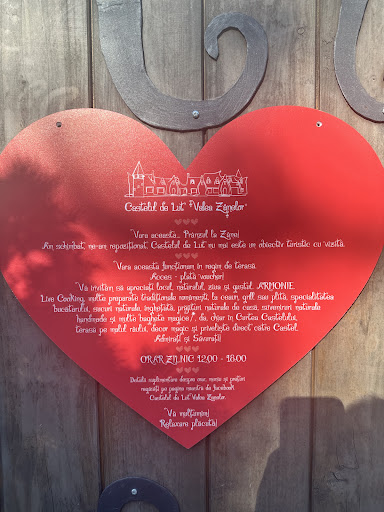 Castelul de Lut "Valea Zânelor"
"Vara aceasta... Prânzul la Zâne!
Am schimbat, ne-am repoziționat, Castelul de Lut nu mai este un obiectiv turistic cu vizită.
"Vara aceasta funcționăm în regim de terasă.
Acces - plată voucher!
"Vă invităm să apreciați locul, naturalul, ziua și gestul, ARMONIE.
Live Cooking, multe preparate tradiționale românești, la ceaun, grill sau plită, specialitatea
bucătarului, sucuri naturale, înghețată, prăjituri naturale de casă, suveniruri naturale
handmade și multe baghete magice!, da, chiar în Curtea Castelului,
terasă pe malul râului, decor magic și priveliște direct către Castel.
Admirați și Savurați!
ORAR ZILNIC 12:00 - 18:00
Detalii suplimentare despre orar, meniu și prețuri
regăsiți pe pagina noastră de facebook
Castelul de Lut Valea Zânelor
"Vă mulțumim!
Relaxare plăcută!